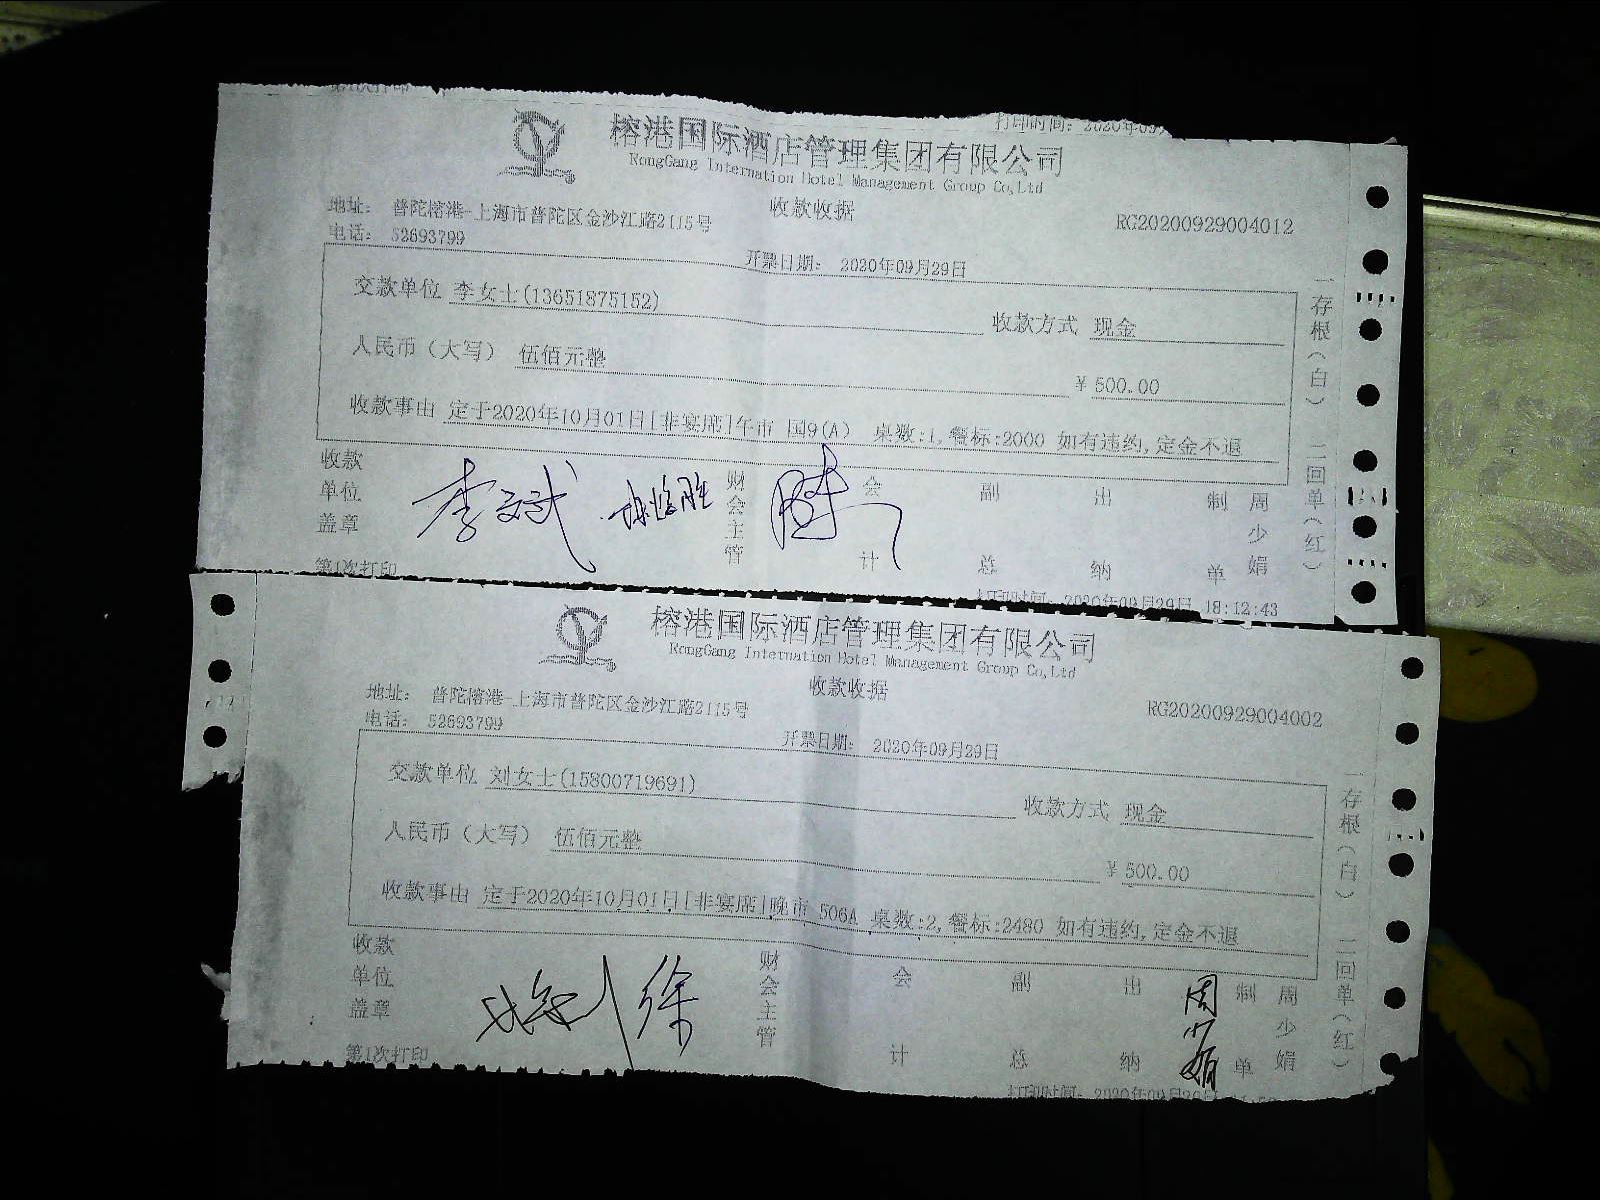 打印时间：2020年09
榕港国际酒店管理集团有限公司
RongGang Internation Hotel Management Group Co,Ltd
收款收据
地址： 普陀榕港-上海市普陀区金沙江路2115号
RG20200929004012
电话： 52693799
开票日期： 2020年09月29日
交款单位 李女士(13651875152)
收款方式 现金
人民币（大写） 伍佰元整
￥500.00
收款事由 定于2020年10月01日[非宴席]午市 国9(A) 桌数:1,餐标:2000 如有违约,定金不退
一存根（白） 二回单（红）
收款单位盖章
李文斌
财会主管
会计
副总
出纳
制单
周少娟
第1次打印
打印时间：2020年09月29日 18:12:43
榕港国际酒店管理集团有限公司
RongGang Internation Hotel Management Group Co,Ltd
收款收据
地址： 普陀榕港-上海市普陀区金沙江路2115号
RG20200929004002
电话： 52693799
开票日期： 2020年09月29日
交款单位 刘女士(15800719691)
收款方式 现金
人民币（大写） 伍佰元整
￥500.00
收款事由 定于2020年10月01日[非宴席]晚市 506A 桌数:2,餐标:2480 如有违约,定金不退
一存根（白） 二回单（红）
收款单位盖章
徐
财会主管
会计
副总
出纳
周少娟
制单
周少娟
第1次打印
打印时间：2020年09月